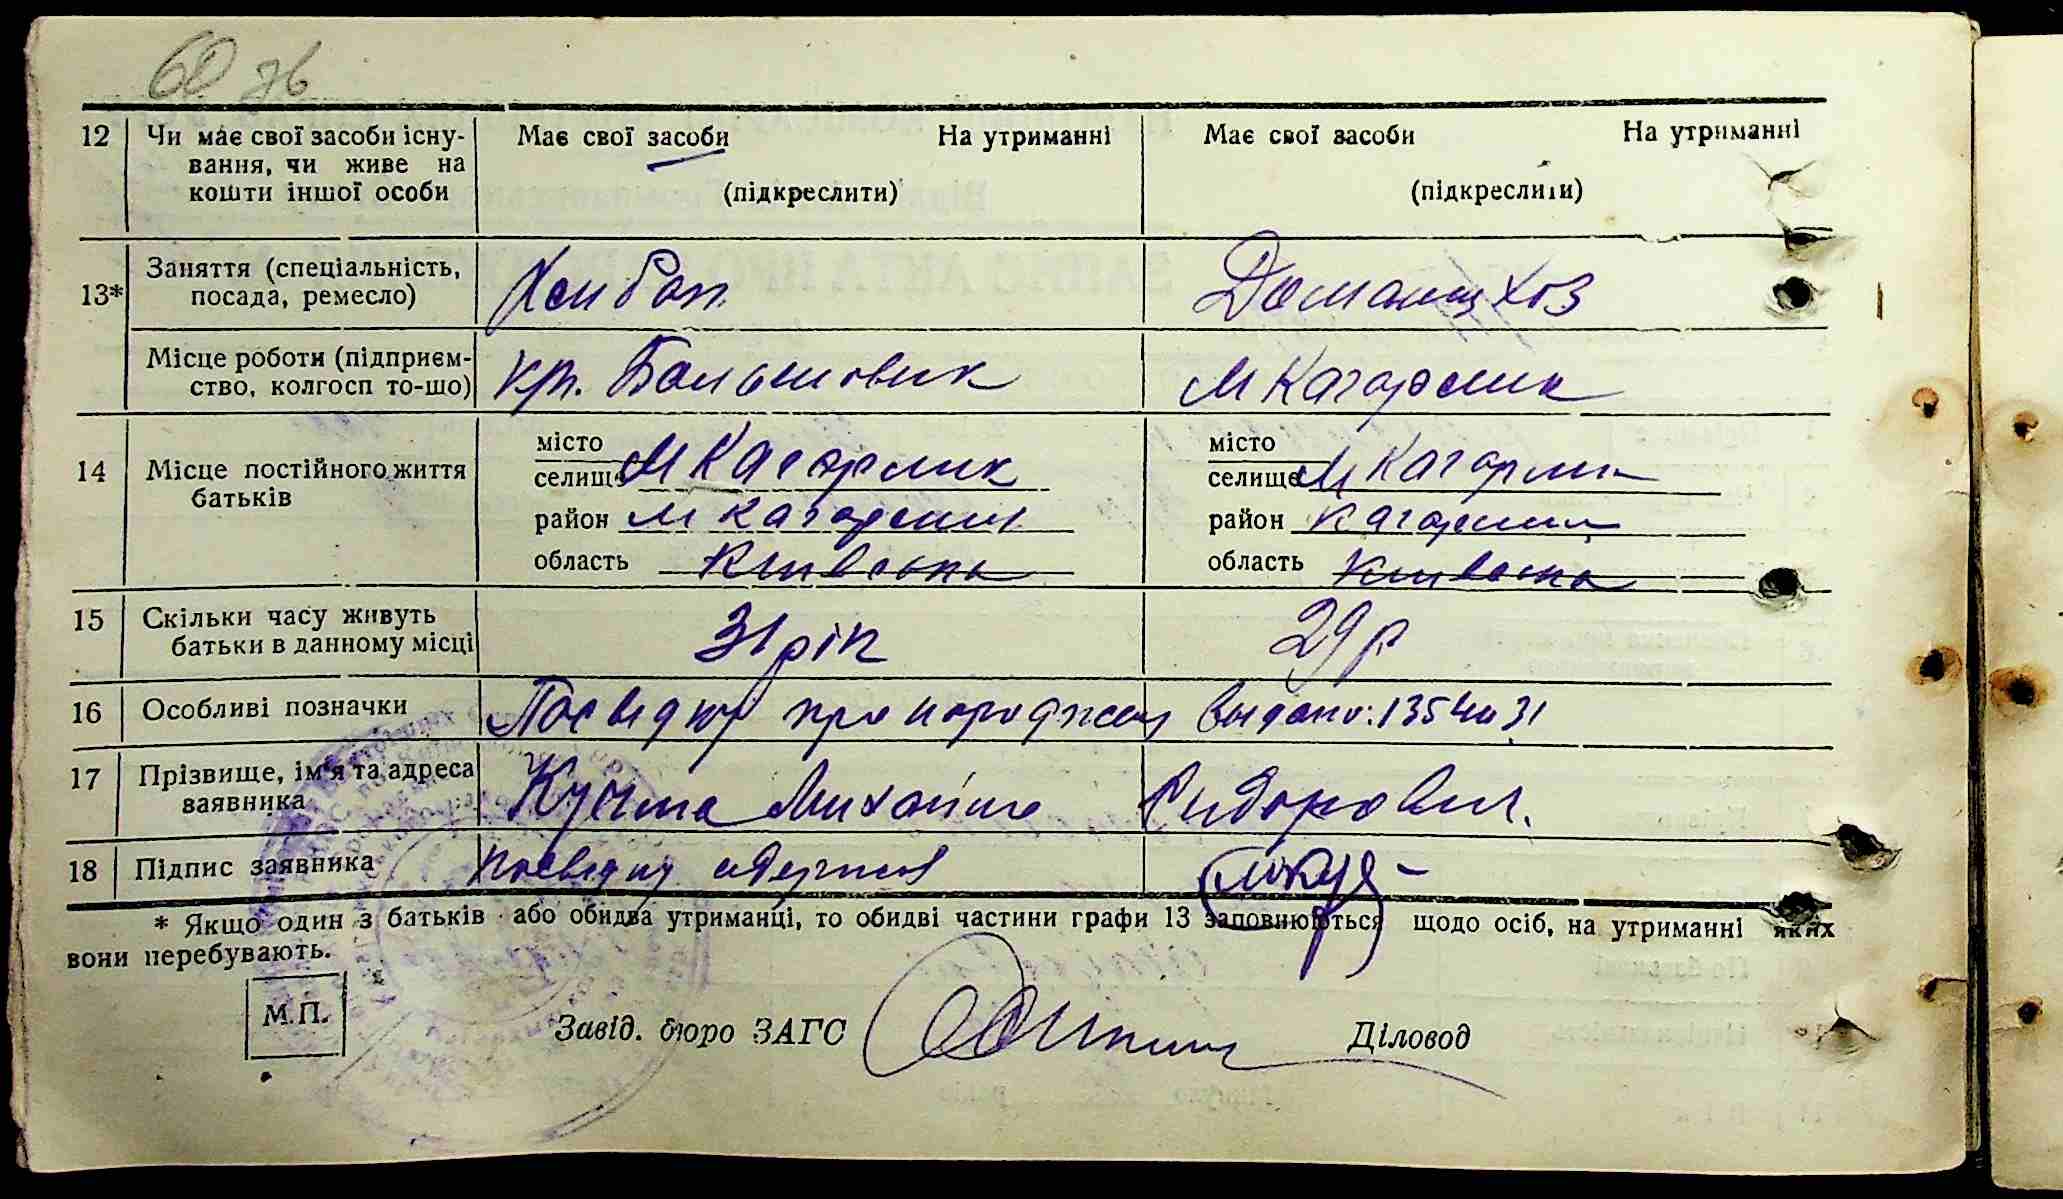 60 зв
12 Чи має свої засоби існу- Має свої засоби На утриманні Має свої засоби На утриманні
вання, чи живе на
кошти іншої особи (підкреслити) (підкреслити)
13* Заняття (спеціальність,
посада, ремесло) Домашн хоз
Місце роботи (підприєм- кр. Большовик м Кагарлик
ство, колгосп то-що)
14 Місце постійного життя місто місто
батьків селище м Кагарлик селище м Кагарлик
район м Кагарлик район Кагарлиц
область Київська область Київська
15 Скільки часу живуть 31 рік 29 р
батьки в данному місці
16 Особливі позначки Посвідку про народжен видано: 135
17 Прізвище, ім'я та адреса Кузьма Михайло Сидорович.
заявника
18 Підпис заявника посвідку
* Якщо один з батьків або обидва утриманці, то обидві частини графи 13 заповнюються щодо осіб, на утриманні яких
вони перебувають.
М.П.
Завід. бюро ЗАГС Діловод